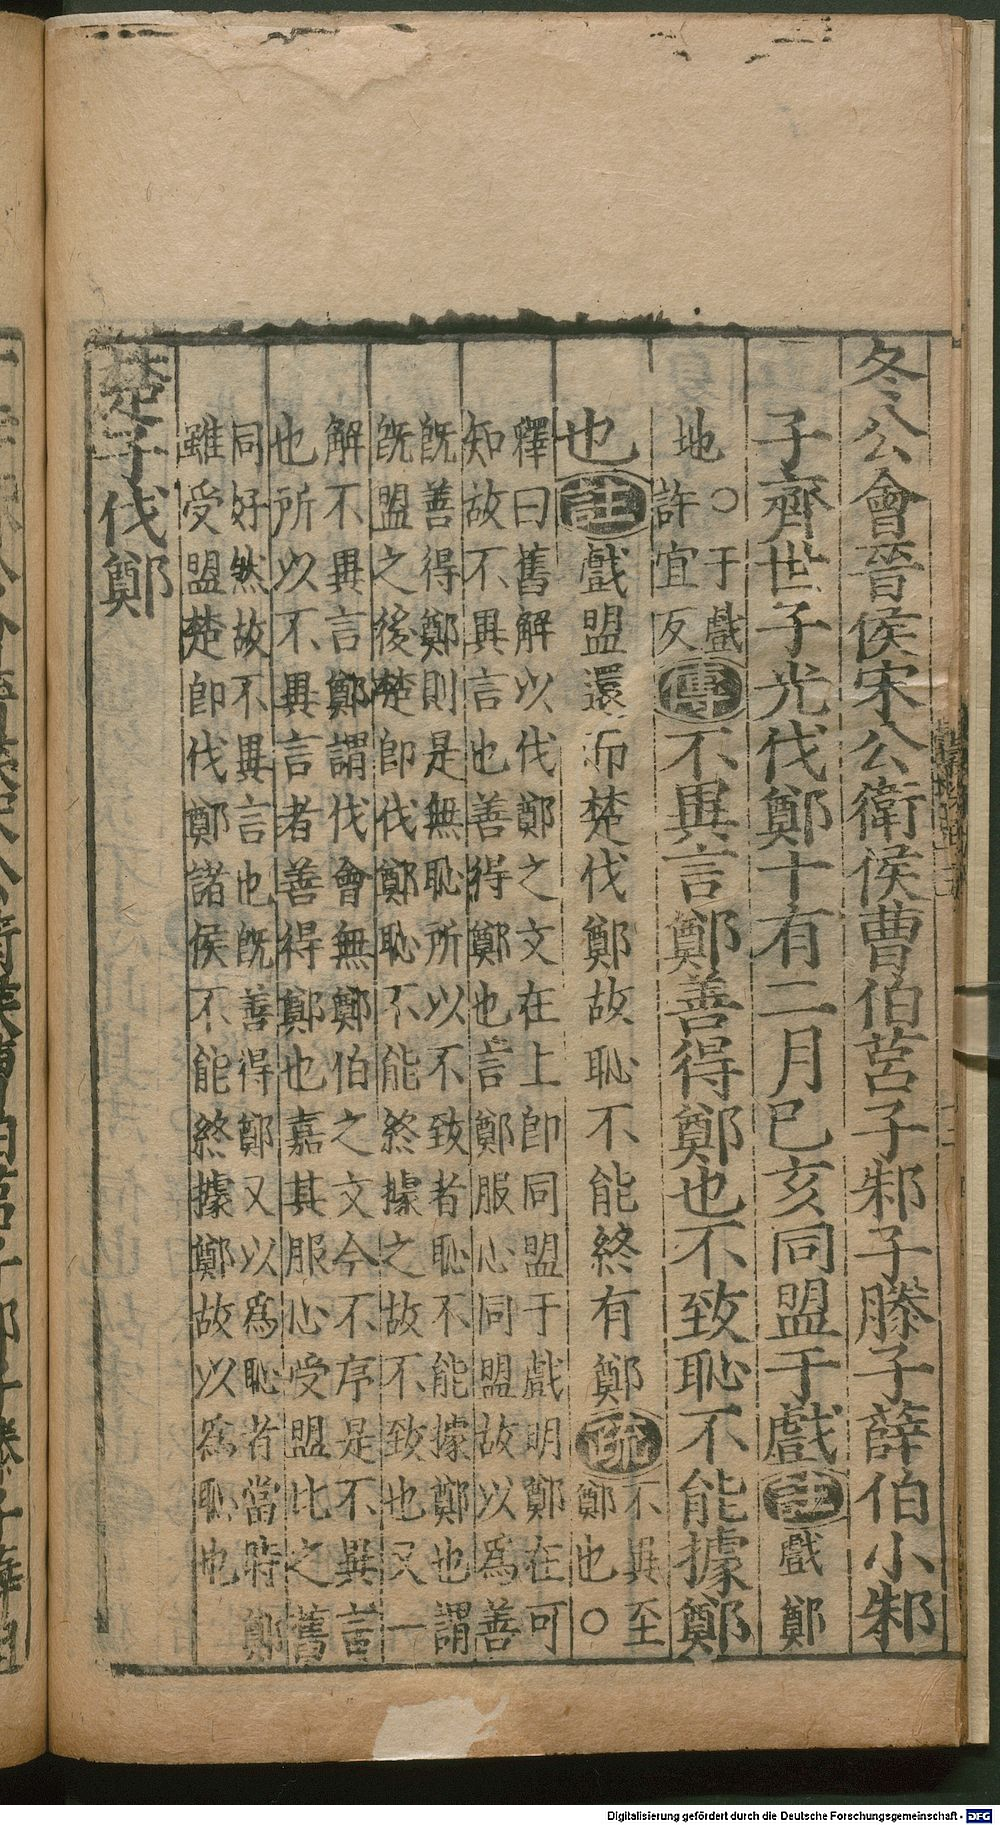 冬公會晉侯宋公衛侯曹伯莒子邾子滕子薛伯小邾
子齊世子光伐鄭十有二月己亥同盟于戲註戲鄭
地○于戲許宜反傳不異言鄭善得鄭也不致恥不能據鄭
也註戲盟還而楚伐鄭故恥不能終有鄭疏不異至鄭也○
釋曰舊解以伐鄭之文在上即同盟于戲明鄭在可
知故不異言也善得鄭也言鄭服心同盟故以爲善
既善得鄭則是無恥所以不致者恥不能據鄭也謂
既盟之後楚即伐鄭恥不能終據之故不致也又一
解不異言鄭謂伐會無鄭伯之文今不序是不異言
也所以不異言者善得鄭也嘉其服心受盟比之舊
同好然故不異言也既善得鄭又以爲恥者當時鄭
雖受盟楚即伐鄭諸侯不能終據鄭故以爲恥也
楚子伐鄭
Digitalisierung gefördert durch die Deutsche Forschungsgemeinschaft - DFG